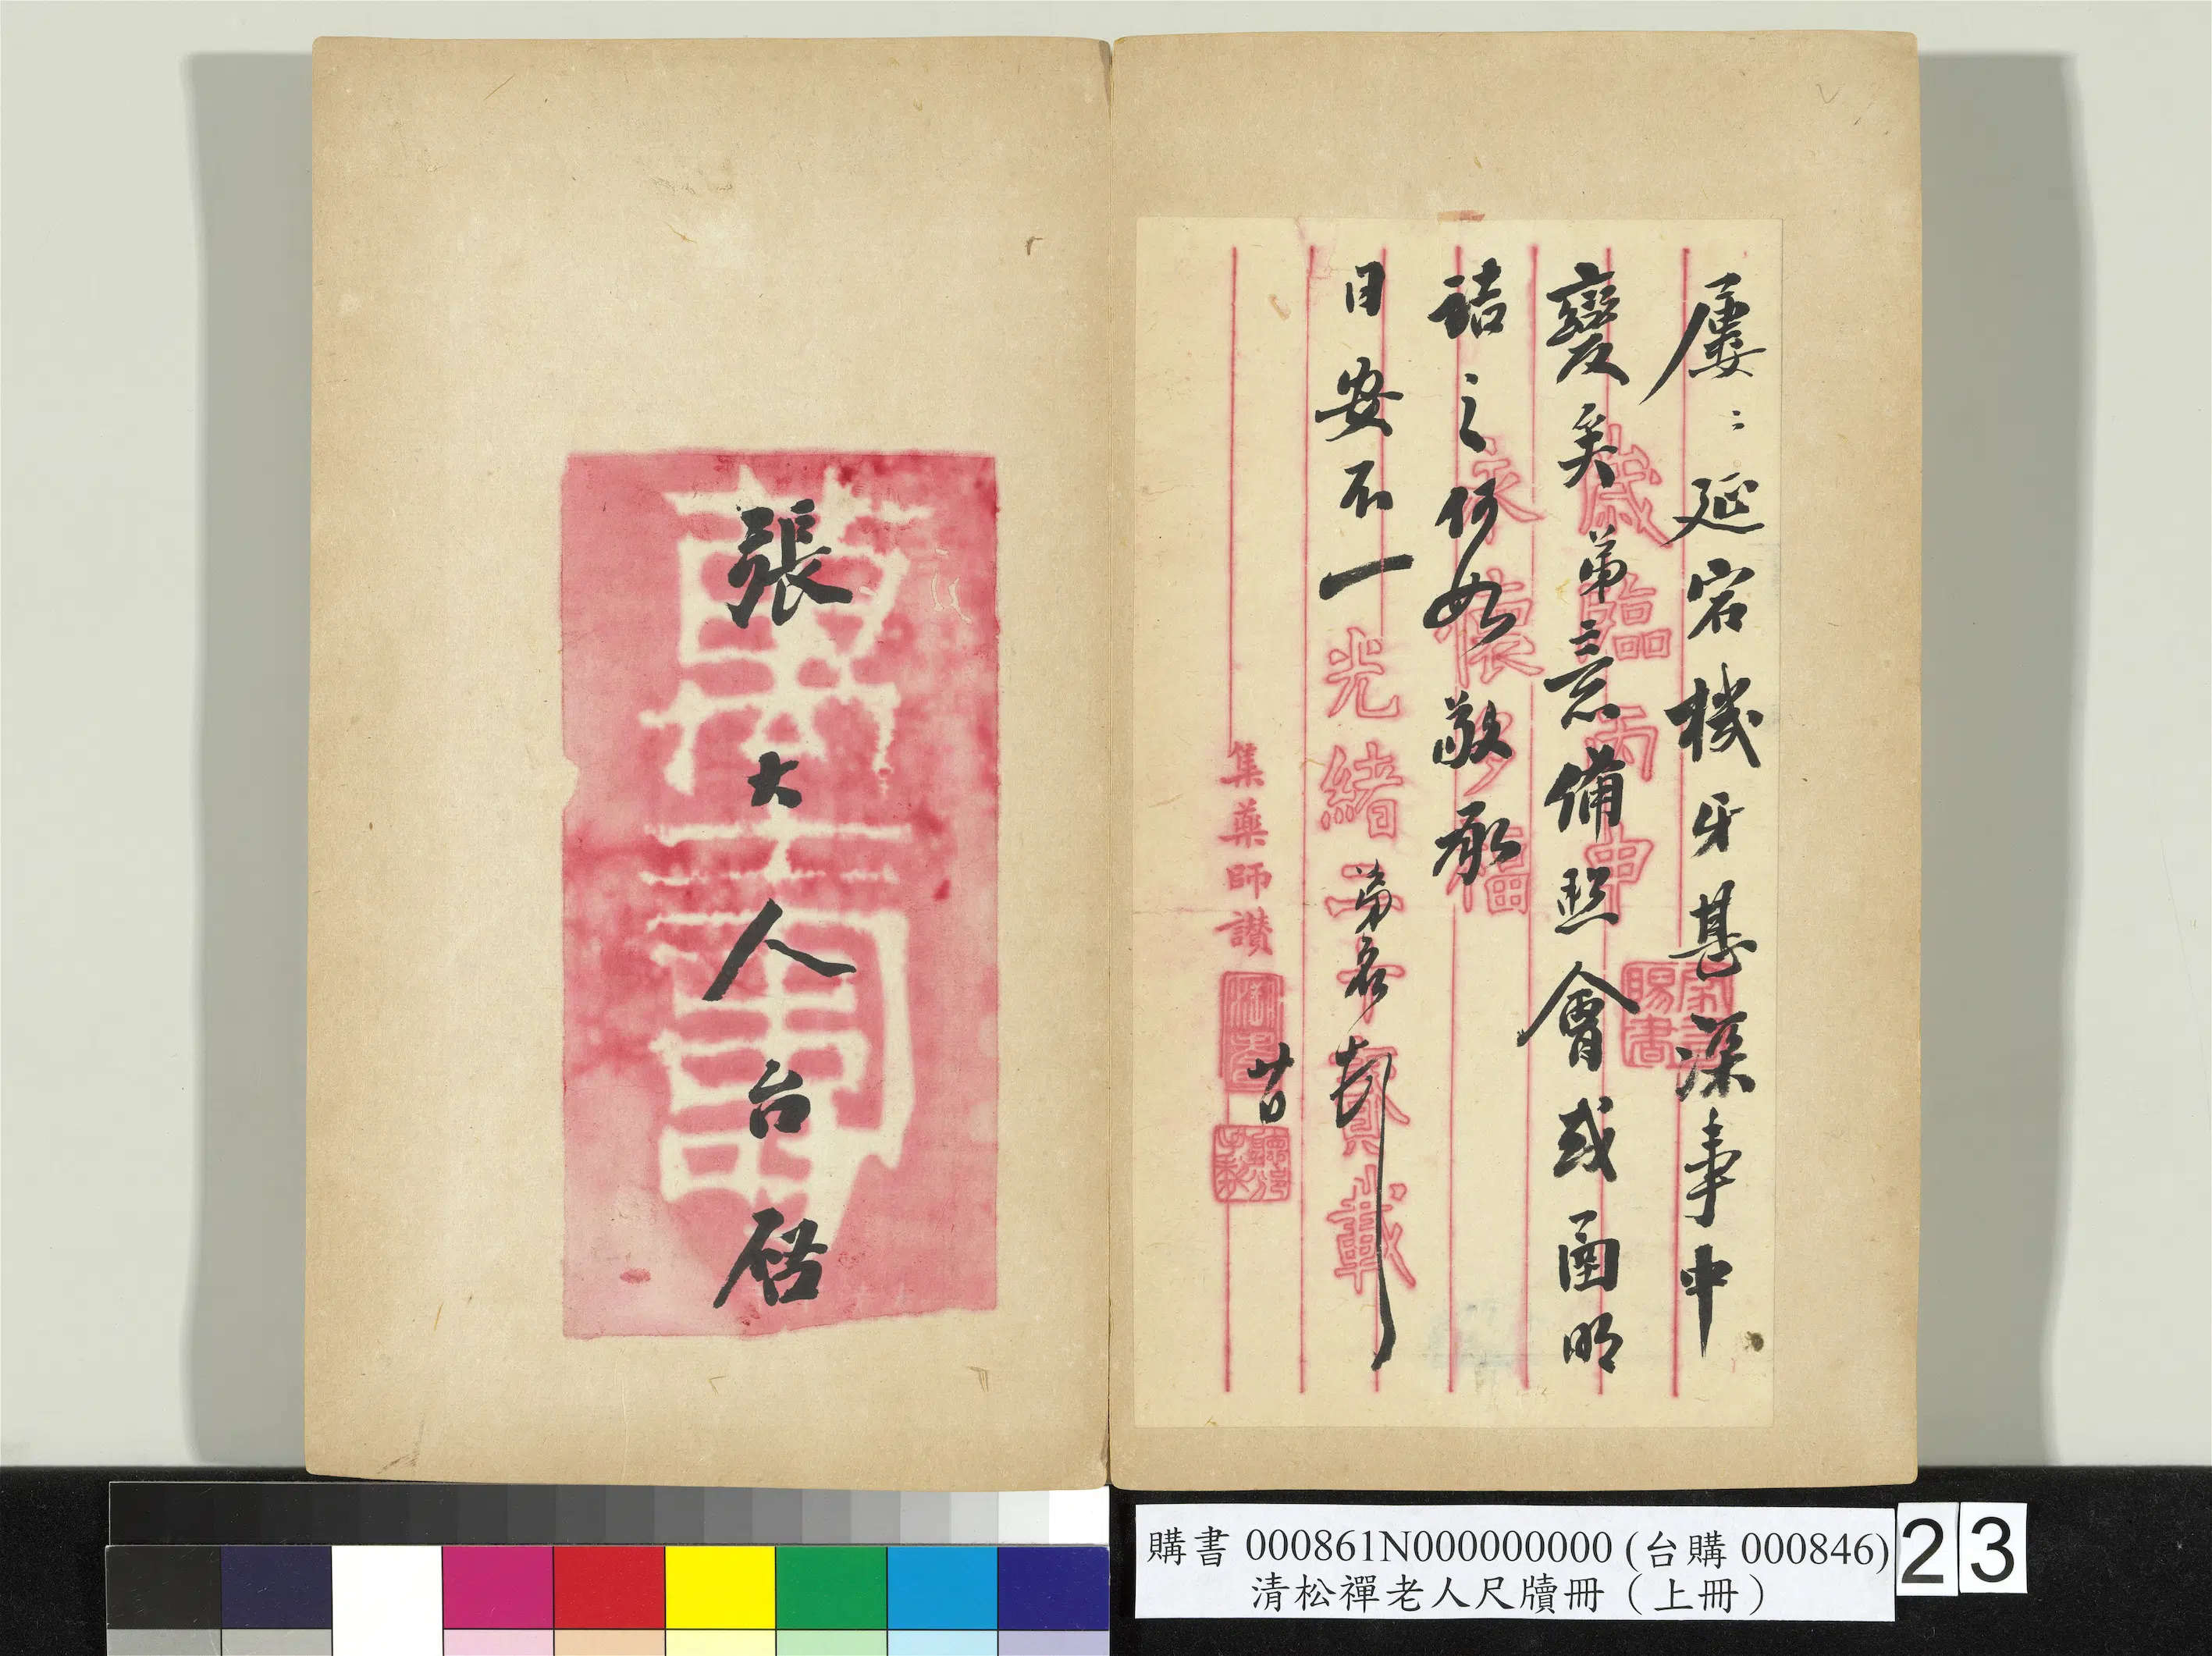 屢〻延宕機牙甚深事中
變矣弟意備照會或圅明
詰之何如敬承
日安不一 弟名頓
廿日
歲臨丙申
永懷多福
光緒二十貳載
集藥師讚
張大人台啟
購書 000861N000000000 (台購 000846)
清松禪老人尺牘冊（上冊）
23